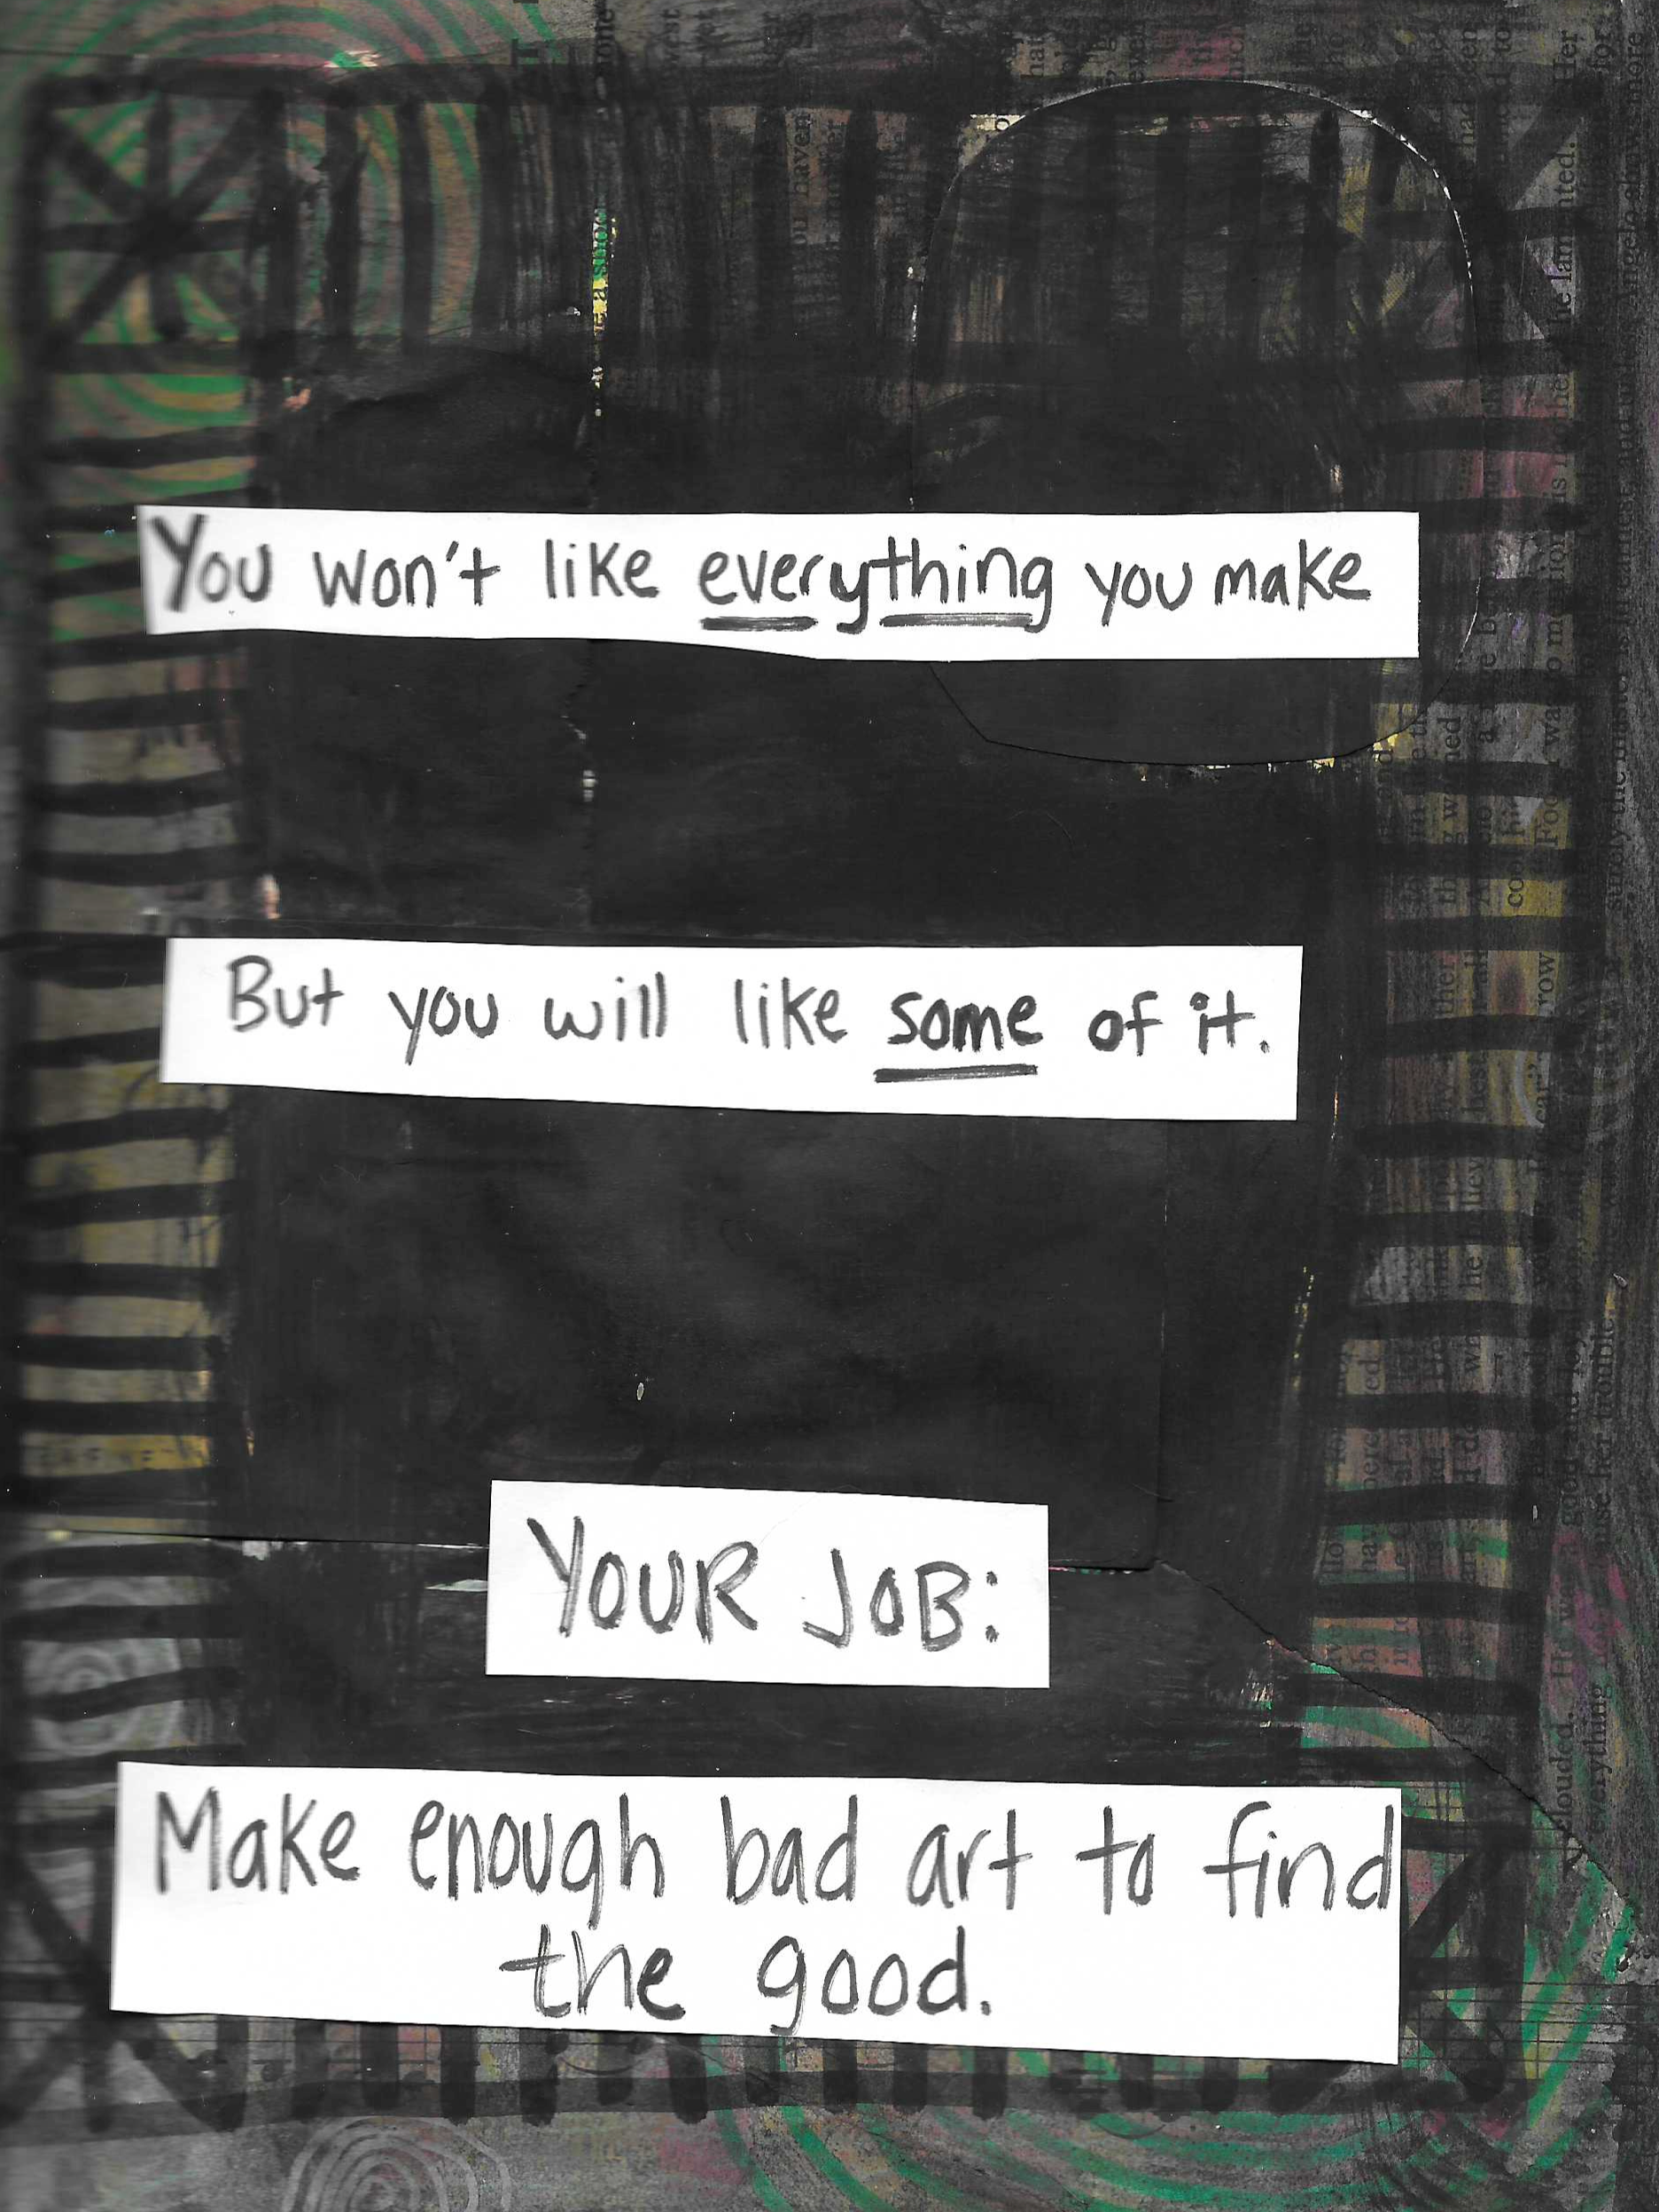 You won't like everything you make
But you will like some of it.
YOUR JOB:
Make enough bad art to find
the good.